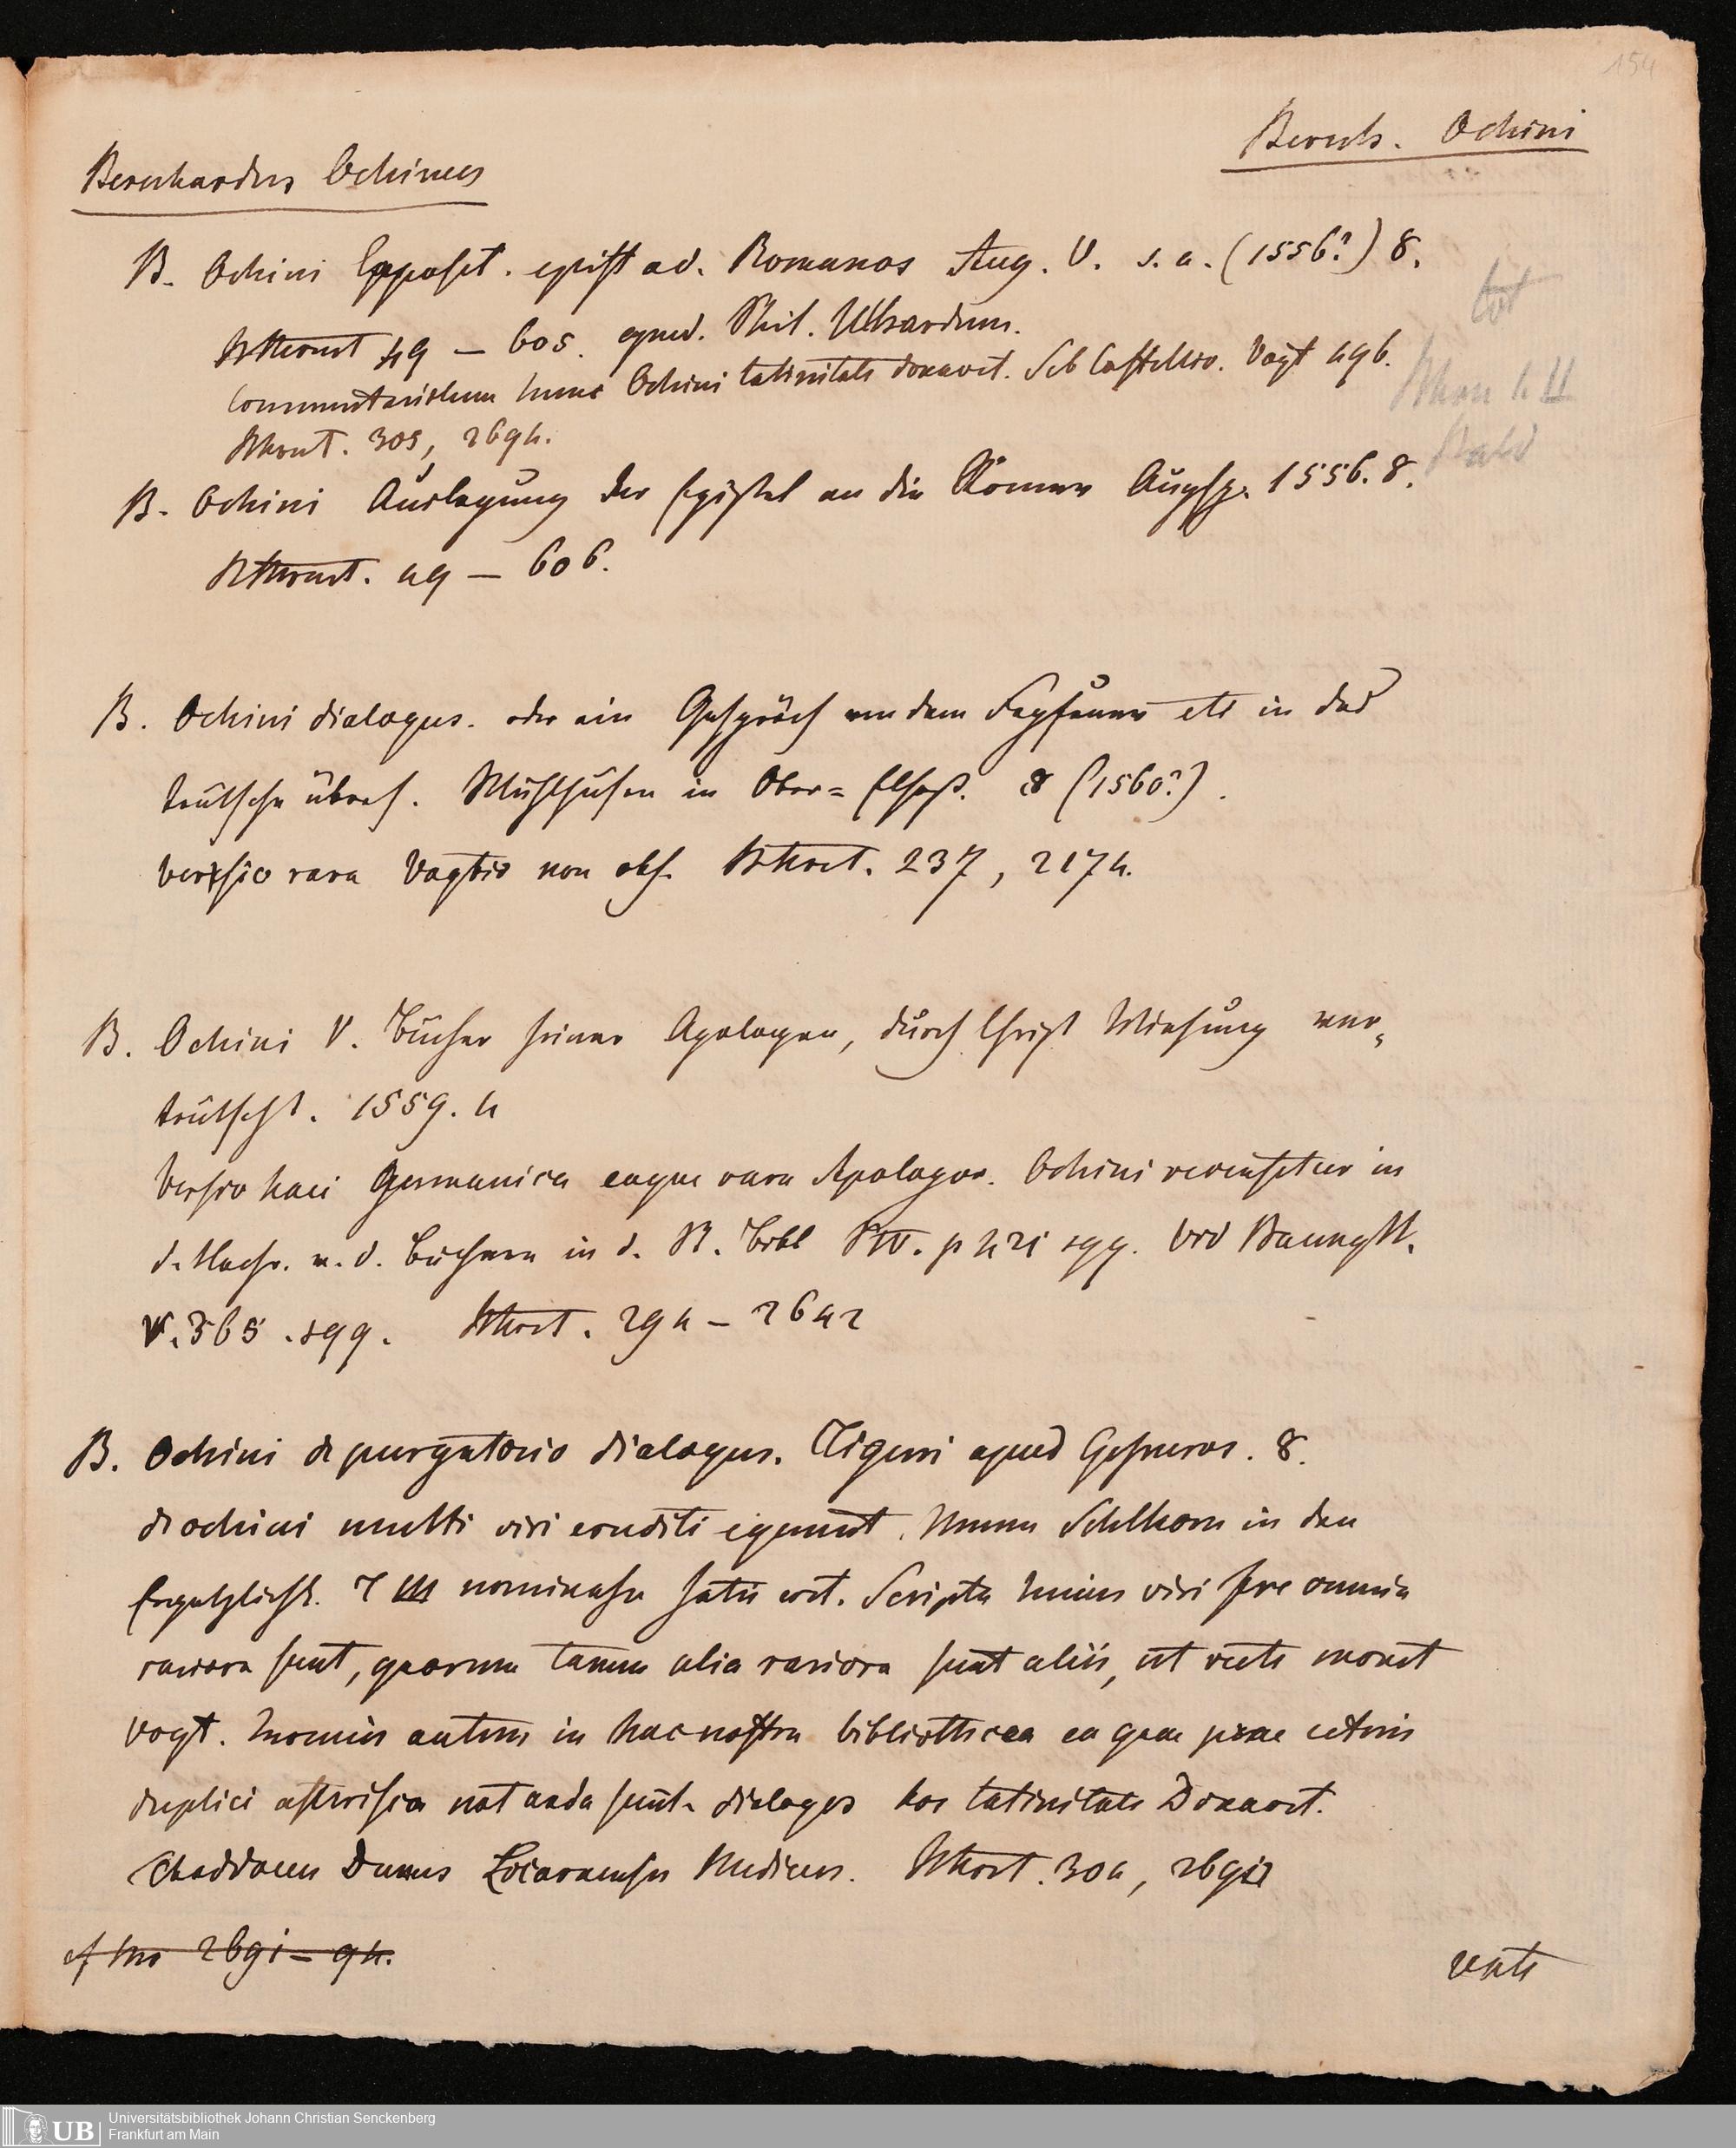 154
Bernh. Ochini
Bernhardus Ochinus
B. Ochini Exposit. epist ad. Romanos Aug. V. s. a. (1556?) 8.
49 – 605. apud. Phil. Ulhardum.
Commentariolum hunc Ochini latinitate donavit. Seb Castellio. Vogt 496.
305, 2694.
B. Ochini Auslegung der Epistel an die Römer Augsp. 1556. 8.
49 – 606.
B. Ochini dialogus. oder ein Gespräch von dem Fegfeuer etc in das
teutsche übers. Mühlhusen in Ober= Elsaß. 8 (1560?).
versio rara Vogtio non obs. 237, 2174.
B. Ochini V. Bücher seiner Apologen, durch Christ Wirsung ver„
teutscht. 1559. 4
Versio haec Germanica eaque rara Apologor. Ochini recensetur in
d. Nachr. v. d. Büchern in d. St. Bibl p 421 sqq. vid Baumgtt.
V. 365 . sqq. 294 – 2642
B. Ochini de purgatorio dialogus. Tiguri apud Gesneros. 8.
de ochini multi viri eruditi egerunt. Unum Schlhorn in den
Ergetzlichk. T III nominasse satis erit. Scripta hujus viri fere omnia
rariora sunt, quorum tamen alia rariora sunt aliis, ut recte monet
Vogt. in hac nostra bibliotheca ea quae prae ceteris
duplici asterisco notanda sunt. dialogos hos latinitate Donavit.
Thaddaeus Dunus Locarnensis Medicus. 304, 2691
cf no 2691 – 94.
verte
tot
Universitätsbibliothek Johann Christian Senckenberg
Frankfurt am Main
UB